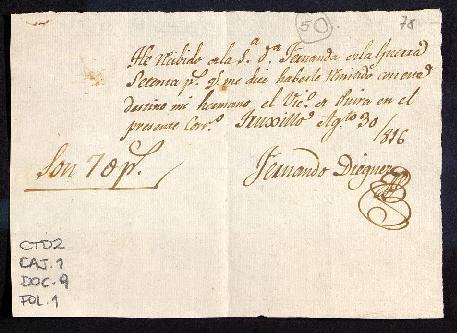 50
78
He recibido de la S.ª D.ª Fernanda de la Guerra
Setenta p.s q.e me dice haberle remitido con ese
destino mi hermano, el Vic.o de Piura en el
presente Corr.o Truxillo y Agto 30
1816
Son 70 p.s
Fernando Dieguez
CTD2
CAJ. 1
DOC. 9
FOL. 1